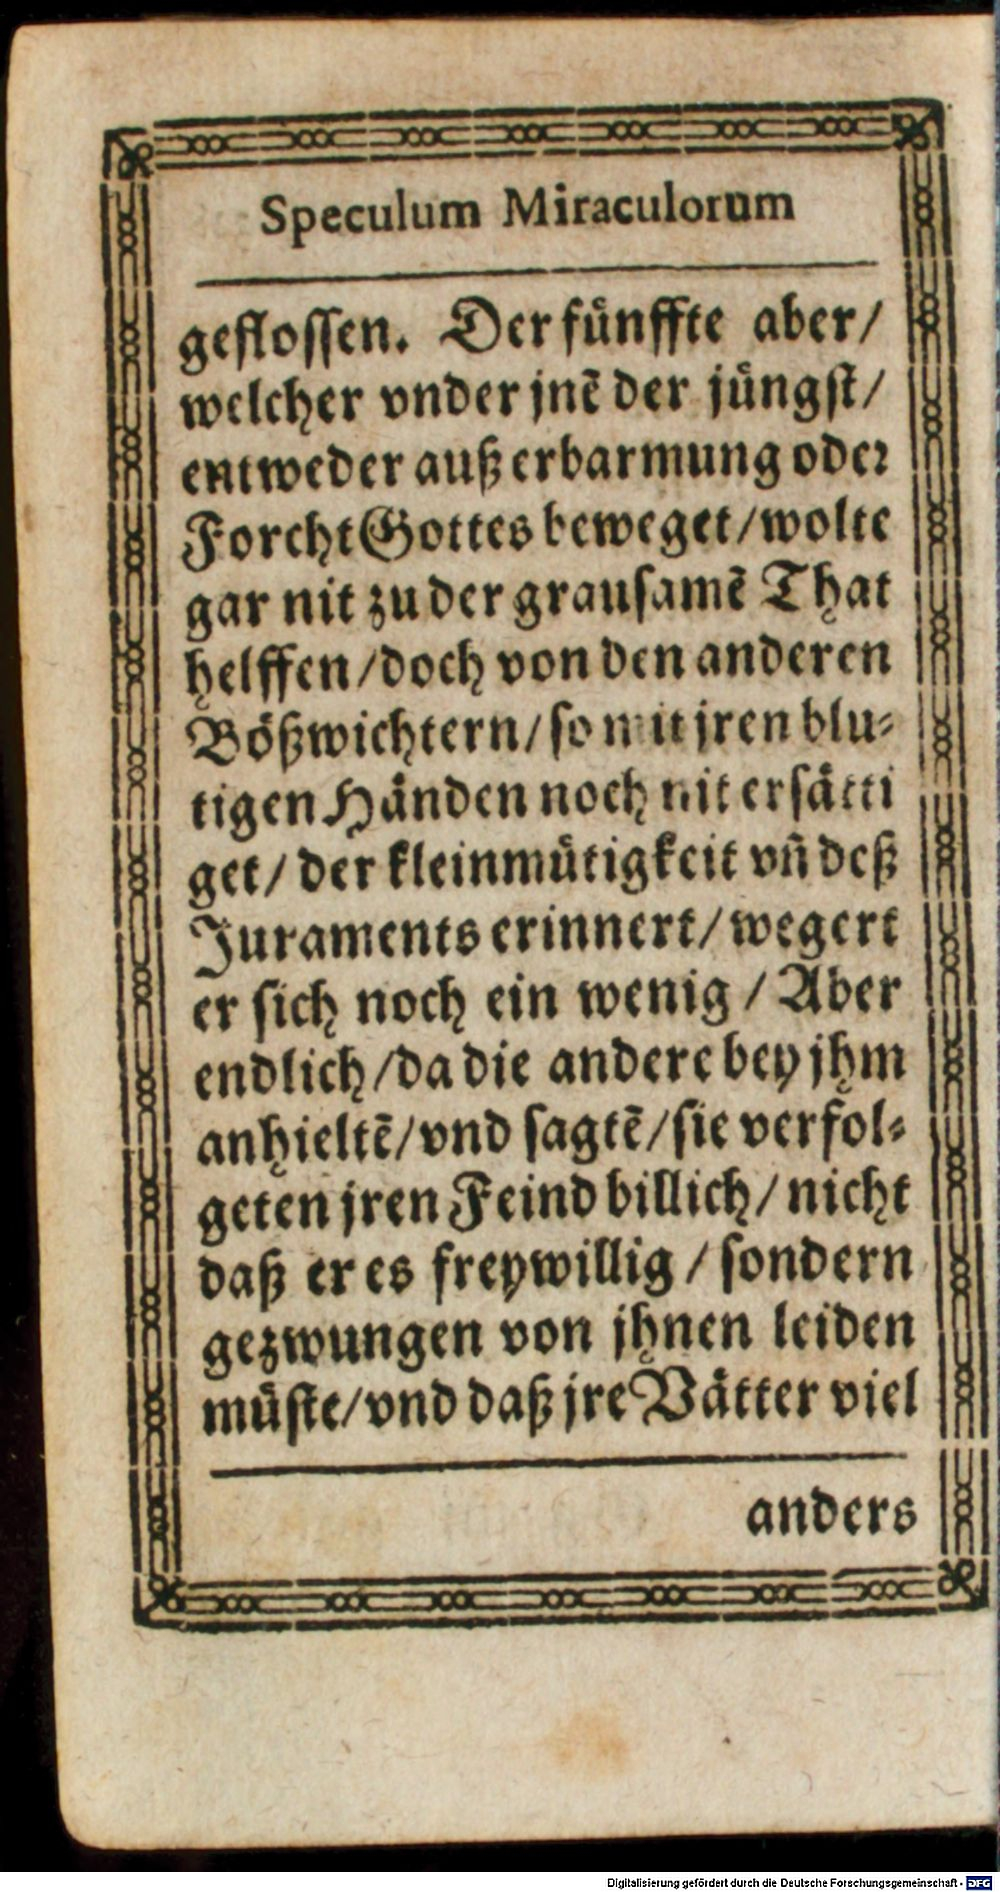 Speculum Miraculorum
geflossen. Der fünffte aber/
welcher vnder jnē der jüngst/
entweder auß erbarmung oder
Forcht Gottes beweget/wolte
gar nit zu der grausamē That
helffen/doch von den anderen
Bößwichtern/so mit jren blu-
tigen Händen noch nit ersätti
get/ der kleinmütigkeit vñ deß
Juraments erinnert/wegert
er sich noch ein wenig / Aber
endlich/da die andere bey jhm
anhieltē/vnd sagtē/sie verfol-
geten jren Feind billich/ nicht
daß er es freywillig / sondern
gezwungen von jhnen leiden
müste/vnd daß jre Vätter viel
anders
Digitalisierung gefördert durch die Deutsche Forschungsgemeinschaft - DFG